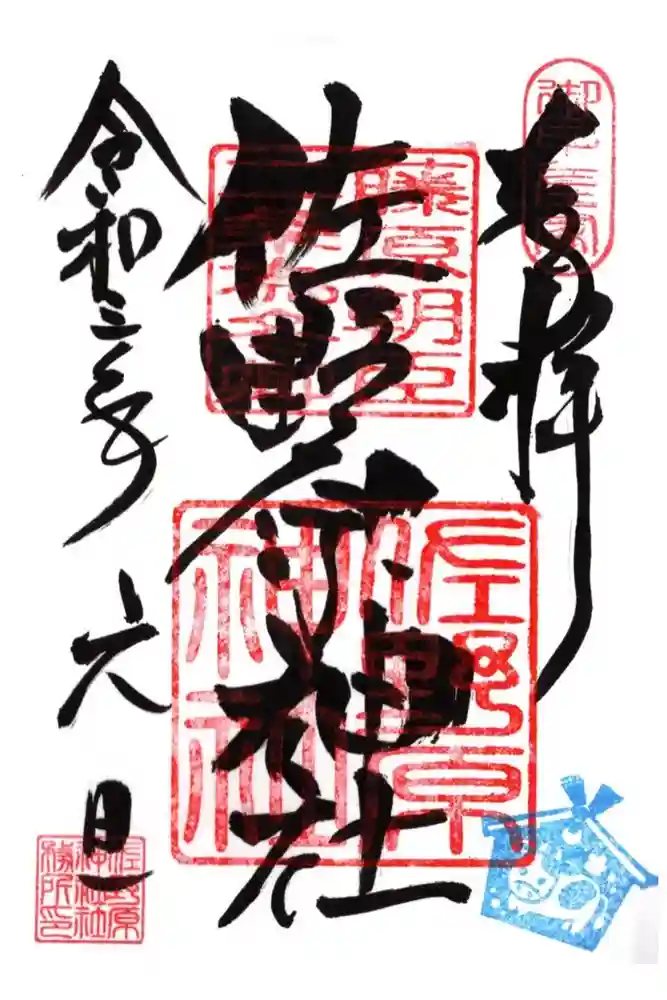 奉拝
佐野原神社
令和三年 元旦
藤原朝臣
佐野原
神社
佐野原
神社社
務所印